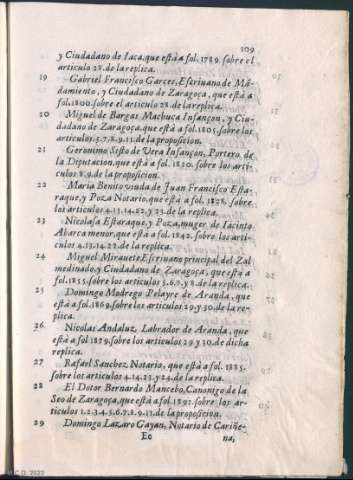 109
y Ciudadano de Iaca, que està a fol. 1789. sobre el
articulo 28. de la replica.
19 Gabriel Francisco Garces, Escriuano de Mã-
damiento, y Ciudadano de Zaragoça, que està a
fol. 1800. sobre el articulo 28. de la replica.
20 Miguel de Bargas Machuca Infançon, y Ciu-
dadano de Zaragoça, que està a fol. 1805. sobre los
articulos 5.7.8.9.13. de la proposicion.
21 Geronimo Sisto de Vera Infançon, Portero de
la Diputacion, que està a fol. 1820. sobre los arti-
culos 8.9. de la proposicion.
22 Maria Benito viuda de Juan Francisco Esta-
raque, y Poza Notario, que està a fol. 1828. sobre
los articulos 4.13.14.22. y 23. de la replica.
23 Nicolasa Estaraque, y Poza, muger de Iacinto
Abarca menor, que està a fol. 1842. sobre los arti-
culos 4.13.14.22. de la replica.
24 Miguel Mirauete Escriuano principal del Zal
medinado, y Ciudadano de Zaragoça, que està a
fol. 1855. sobre los articulos 5.6.7. y 8. de la replica.
25 Domingo Modrego Pelayre de Aranda, que
està a fol. 1869. sobre los articulos 29. y 30. de la re-
plica.
26 Nicolas Andaluz, Labrador de Aranda, que
està a fol 1879. sobre los articulos 29. y 30. de dicha
replica.
27 Rafael Sanchez Notario, que està a fol. 1885.
sobre los articulos 4.14.23. y 24. de la replica.
28 El Dotor Bernardo Mancebo, Canonigo de la
Seo de Zaragoça, que està a fol. 1892. sobre los ar-
ticulos 1.2.3.4.5.6.7.8.9.11. de la proposicion.
29 Domingo Lazaro Gayan, Notario de Cariñe-
Ee na,